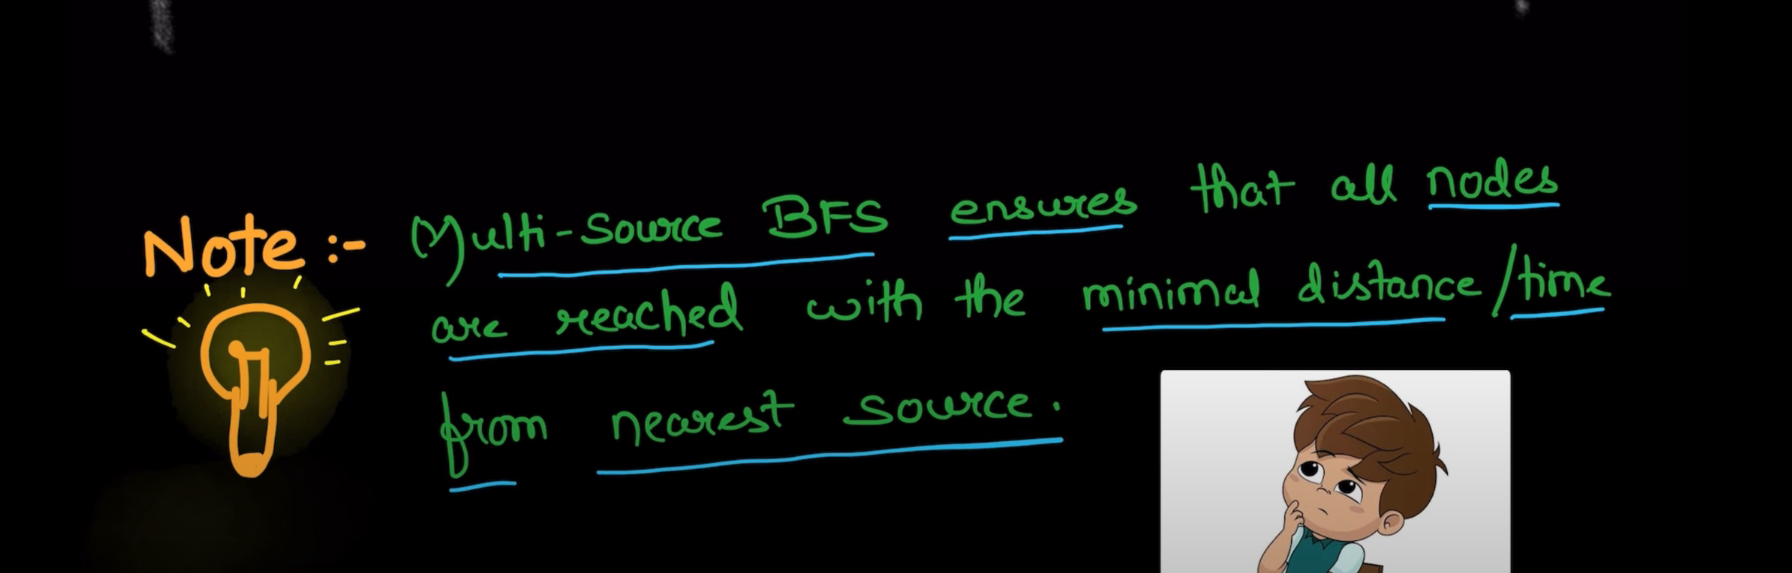 Note :- Multi-Source BFS ensures that all nodes
are reached with the minimal distance/time
from nearest source.